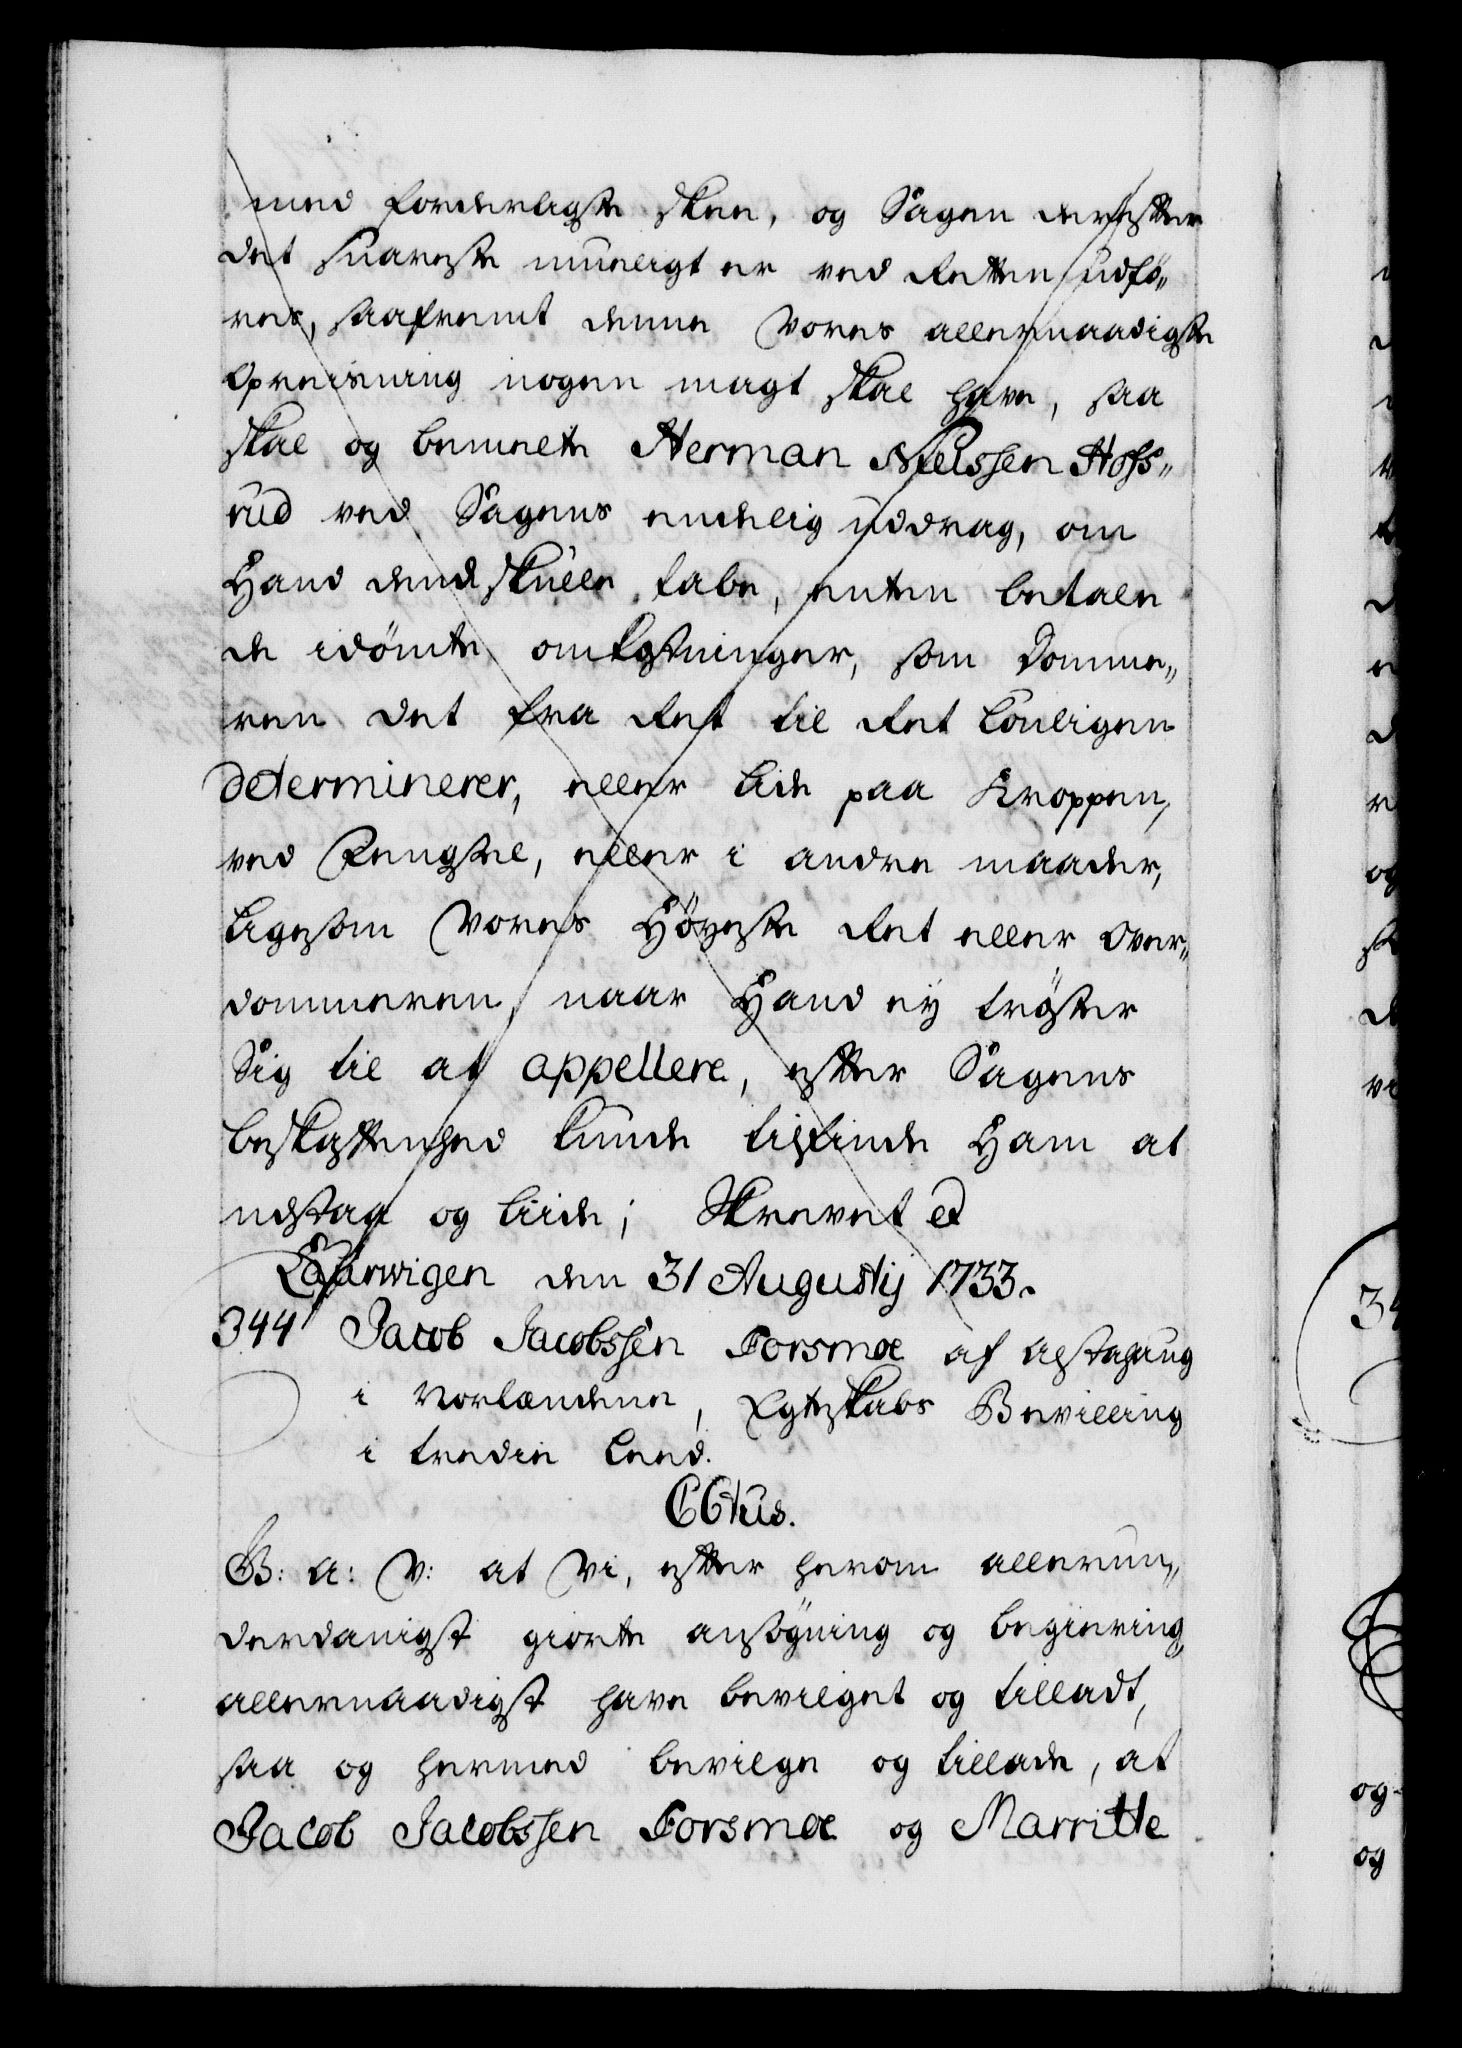 med forderligste skee, og Sagen derefter
det snareste mueligt er ved Retten udfø„
res, saafremt denne Vores allernaadigste
Opreisning nogen magt skal have, saa
skal og bemelte Herman Nielssen Hoffs„
rud ved Sagens endelig uddrag, om
Hand dend skulle tabe, enten betale
de idömte omkostninger, som Domme„
ren det fra Ret til Ret lovligen
determinerer, eller lide paa Kroppen,
ved Fengsel, eller i andre maader,
ligesom Vores Höyeste Ret eller Over„
dommeren, naar Hand ey tröster
Sig til at appellere, efter Sagens
beskaffenhed kunde tilfinde Ham at
udstaa og liide; Skrevet et
Laurwigen den 31 Augustij 1733.
344 Jacob Jacobssen Forsmoe af Alstahaug
i Norlandene, Egteskabs Bevilling
i tredie Leed.
C6tus.
G: A: V: at Vi, efter herom allerun„
derdanigst giorte ansögning og begiering
allernaadigst have bevilget og tilladt,
saa og hermed bevilge og tillade, at
Jacob Jacobssen Forsmoe og Marritte